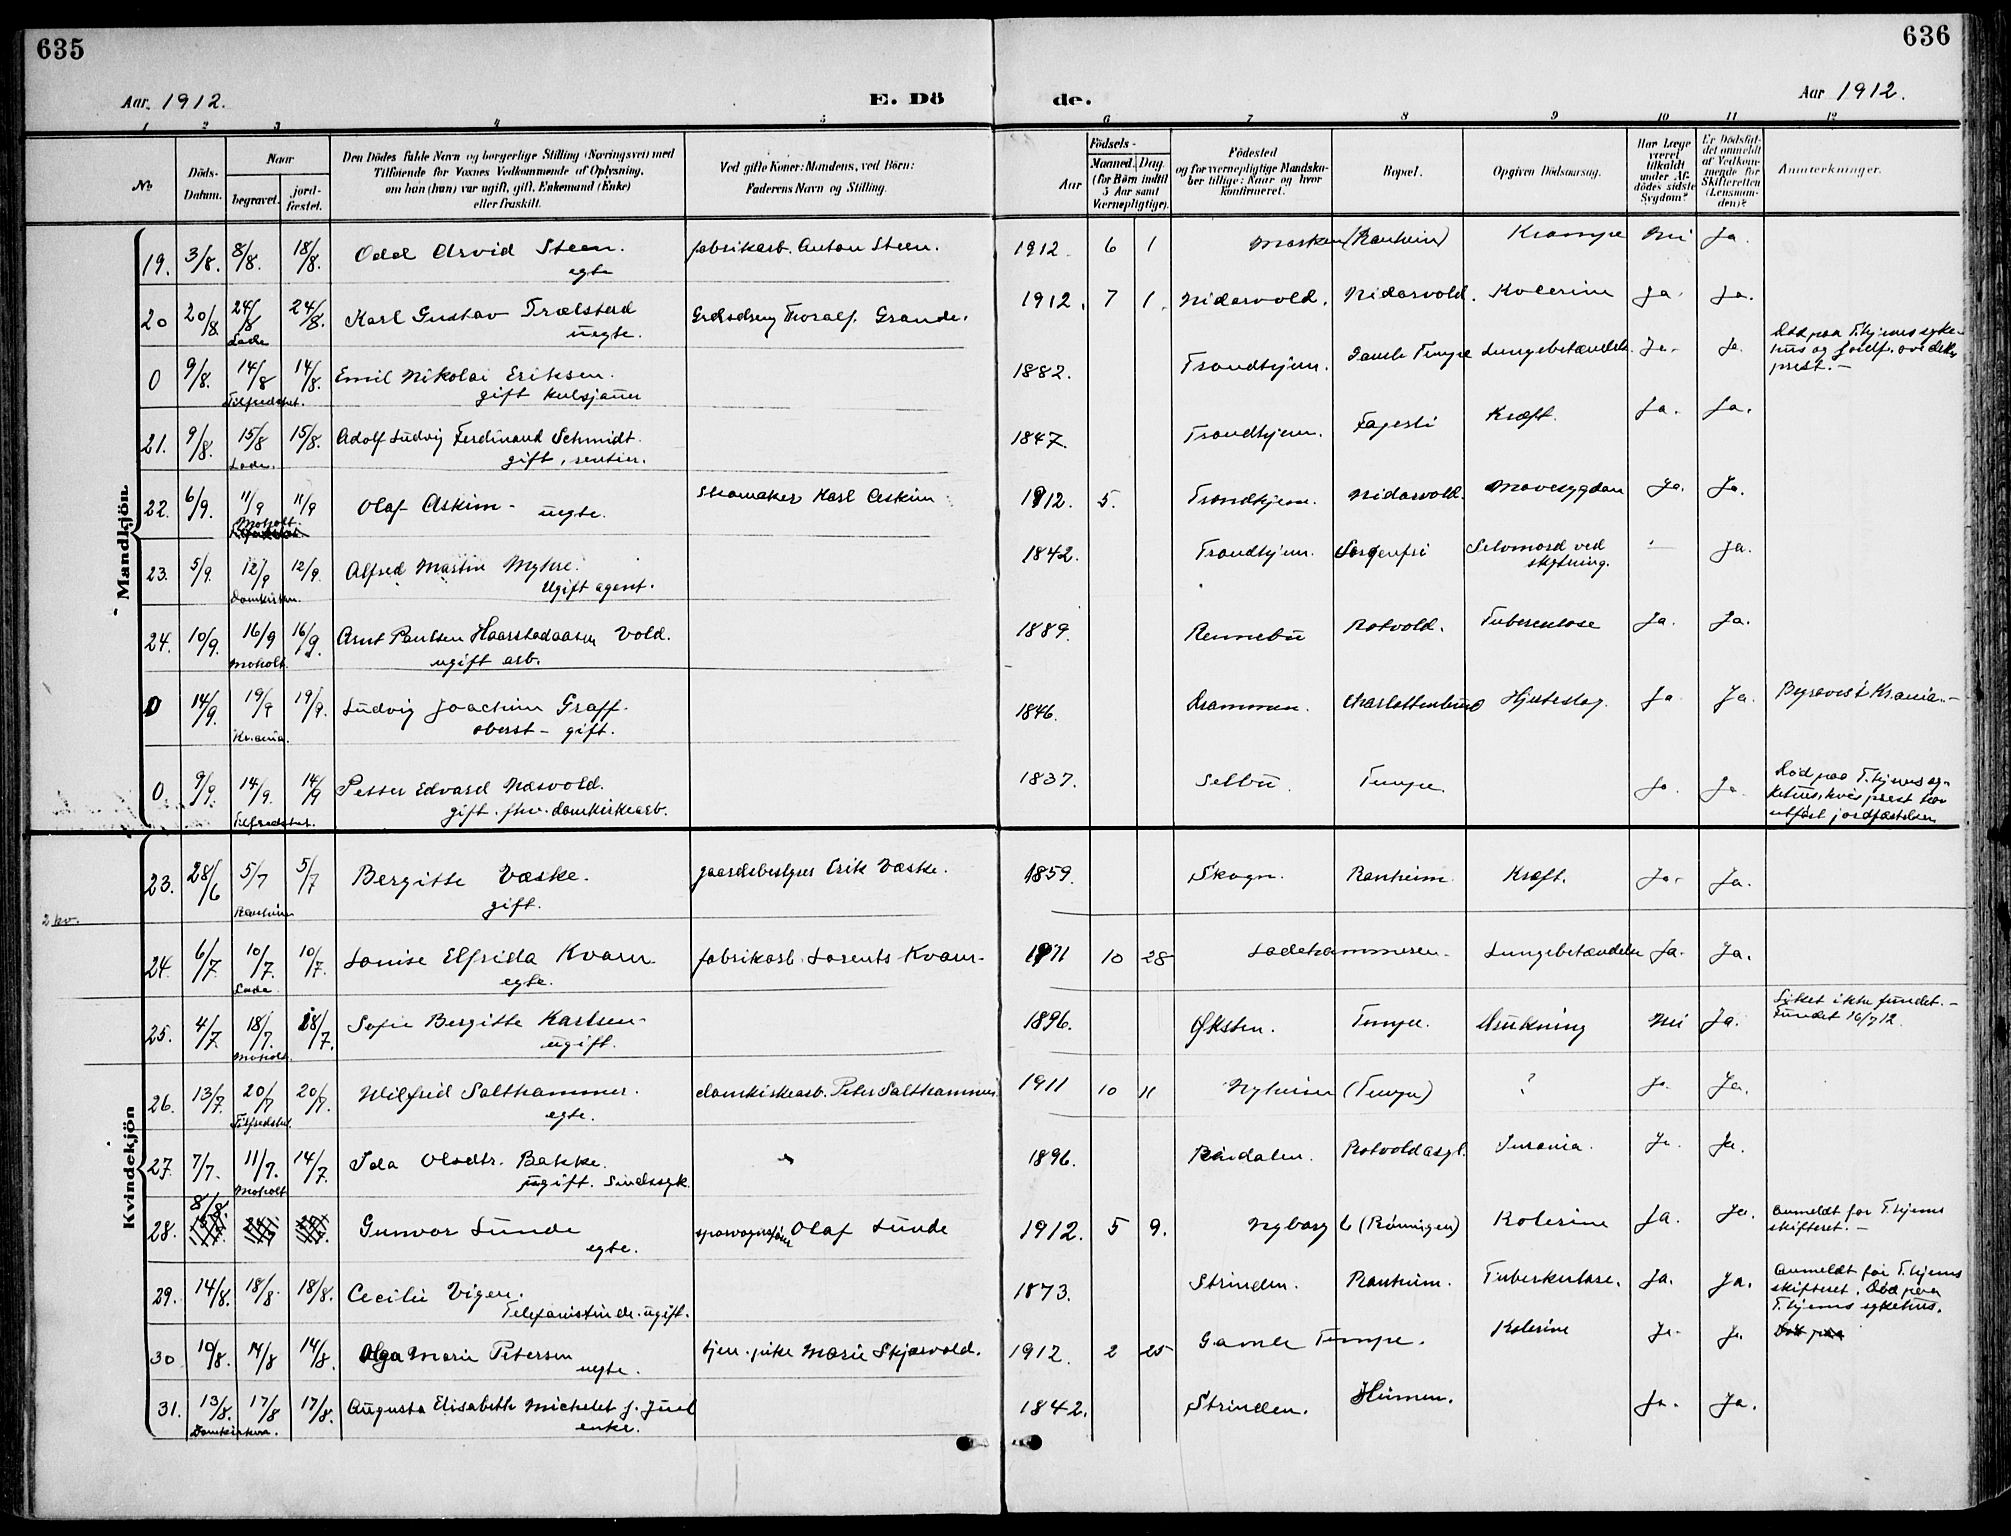 635
636
Aar. 1912.
E. Dö
de.
Aar 1912.
1 2 3 4 5 6 7 8 9 10 11 12
No
Döds-
Datum.
Naar
begravet.
jord-
fæstet.
Den Dödes fulde Navn og borgerlige Stilling (Næringsvei) med
Tilföiende for Voxnes Vedkommende af Oplysning,
om han (hun) var ugift, gift, Enkemand (Enke)
eller fraskilt.
Ved gifte Koner: Mandens, ved Börn:
Faderens Navn og Stilling.
Födsels-
Aar
Maaned. Dag.
(for Börn indtil
5 Aar samt
Værnepligtige).
Födested
og for værnepligtige Mandska-
ber tillige: Naar og hvor
konfirmeret.
Bopæl.
Opgiven Dödsaarsag.
Har Læge
været
tilkaldt
under Af-
dödes sidste
Sygdom?
Er Dödsfal-
det anmeldt
af Vedkom-
mende for
Skifteretten
(Lensman-
den)?
Anmærkninger.
Mandkjön
19. 3/8. 8/8. 18/8. Odd Arvid Steen. fabrikarb. Anton Steen. 1912. 6 1 (Ranheim) Krampe Nei Ja.
egte
20 20/8 24/8 24/8. Karl Gustav Trælstad Thoralf Grande. 1912. 7 1. Nidarvold. Nidarvold. Kolerine Ja. Ja.
Lade uegte.
0 9/8. 14/8 14/8. Emil Nikolai Eriksen. 1882. Trondhjem. Gamle Tempe Lungebetændelse. Ja. Ja. Död paa T.hjems syke-
hus og jordf. av dets
prest.-
Tilfredshet. gift kulsjauer
21. 9/8. 15/8 15/8. Adolf Ludvig Ferdinand Schmidt. 1847. Trondhjem. Fagerli Kræft. Ja. Ja.
Lade. gift, rentier.
22. 6/9. 11/9 11/9 Olaf Askim - uegte. Skomaker Karl Askim 1912. 5. Trondhjem. Nidarvold. Mavesygdom Ja. Ja.
Moholt.
23. 5/9. 12/9 12/9. Alfred Martin Myhre. 1842. Trondhjem. Sorgenfri Selvmord ved
skytning. - Ja.
Domkirken. Ugift agent.
24. 10/9. 16/9 16/9. Arnt Paulsen Haarstadaasen Vold. 1889. Rennebu Rotvold. Tuberculose Ja. Ja.
Moholt. ugift arb.
0 14/9. 19/9 19/9. Ludvig Joachim Graff. 1846. Drammen. Charlottenlund Hjerteslag. Ja Ja. Kr.ania.-
Kr.ania. oberst - gift.
0. 9/9. 14/9. 14/9 Petter Edvard Næsvold. 1837. Selbu Tempe. Ja. Ja. Död paa T.hjems sy-
kehus, hvis prest har
utfört jordfæstelsen
Tilfredshet. gift. fhv. domkirkearb.
Kvindekjön
23. 28/6 5/7 5/7 Bergitte Væske. gaardsbestyrer Erik Væske. 1859. Skogn. Ranheim. Kræft. Ja. Ja.
Ranheim gift.
24. 6/7. 10/7. 10/7. Louise Elfrida Kvam fabrikarb. Lorents Kvam. 1911 10 28 Ladehammeren. Lungebetændelse Ja. Ja.
Lade egte.
25. 4/7. 18/7. 18/7. Sofie Bergitte Karlsen 1896. Øksten. Tempe. Drukning Nei Ja. Liket ikke fundet.-
Fundet 16/7 12.
Moholt. ugift.
26. 13/7. 20/7 20/7. Wilfrid Salthammer. domkirkearb. Peter Salthammer 1911 10 11 Nyheim (Tempe) ? Ja. Ja.
Tilfredshet. egte.
27. 7/7. 11/7. 14/7. Ida Olsdtr. Bakke. 1896. Rindalen. Rotvold asyl. Insania. Ja. Ja.
Moholt ugift. Sindssyk.
28. 8/8. Gunvor Sunde Olaf Sunde 1912. 5 9. Nyborg (Rönningen) Kolerine Ja. Ja. Anmeldt for T.hjems
skifteret.-
egte.
29. 14/8. 18/8. 18/8. Cecilie Vigen. 1873. Strinden. Ranheim. Tuberkulose. Ja. Ja. Anmeldt for T.hjems
skifteret. Död paa
T.hjems sykehus.
Telefonistinde. ugift.
30. 10/8. 14/8 14/8. Olga Marie Petersen tjen.pike Marie Skjærvold. 1912. 2 25 Gamle Tempe. Kolerine Ja. Ja.
uegte.
31. 13/8. 17/8 17/8. Augusta Elisabeth Michelet f. Juel 1842. Strinden. Ja. Ja.
Domkirken. enke.